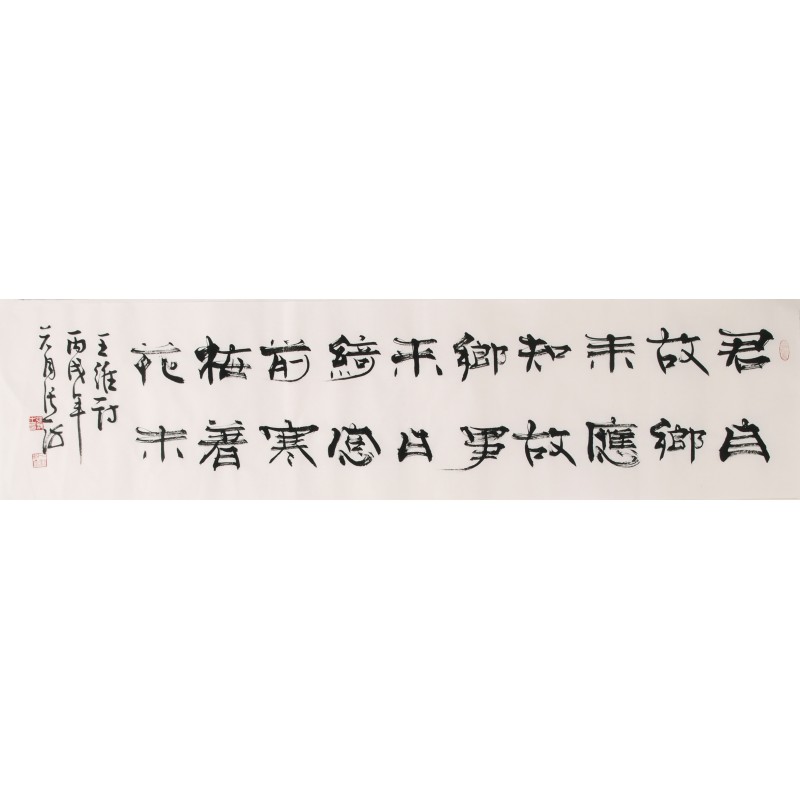 君自
故鄉
来應
知故
鄉事
来日
綺窗
前寒
梅著
花未
王維詩
丙戌年
六月